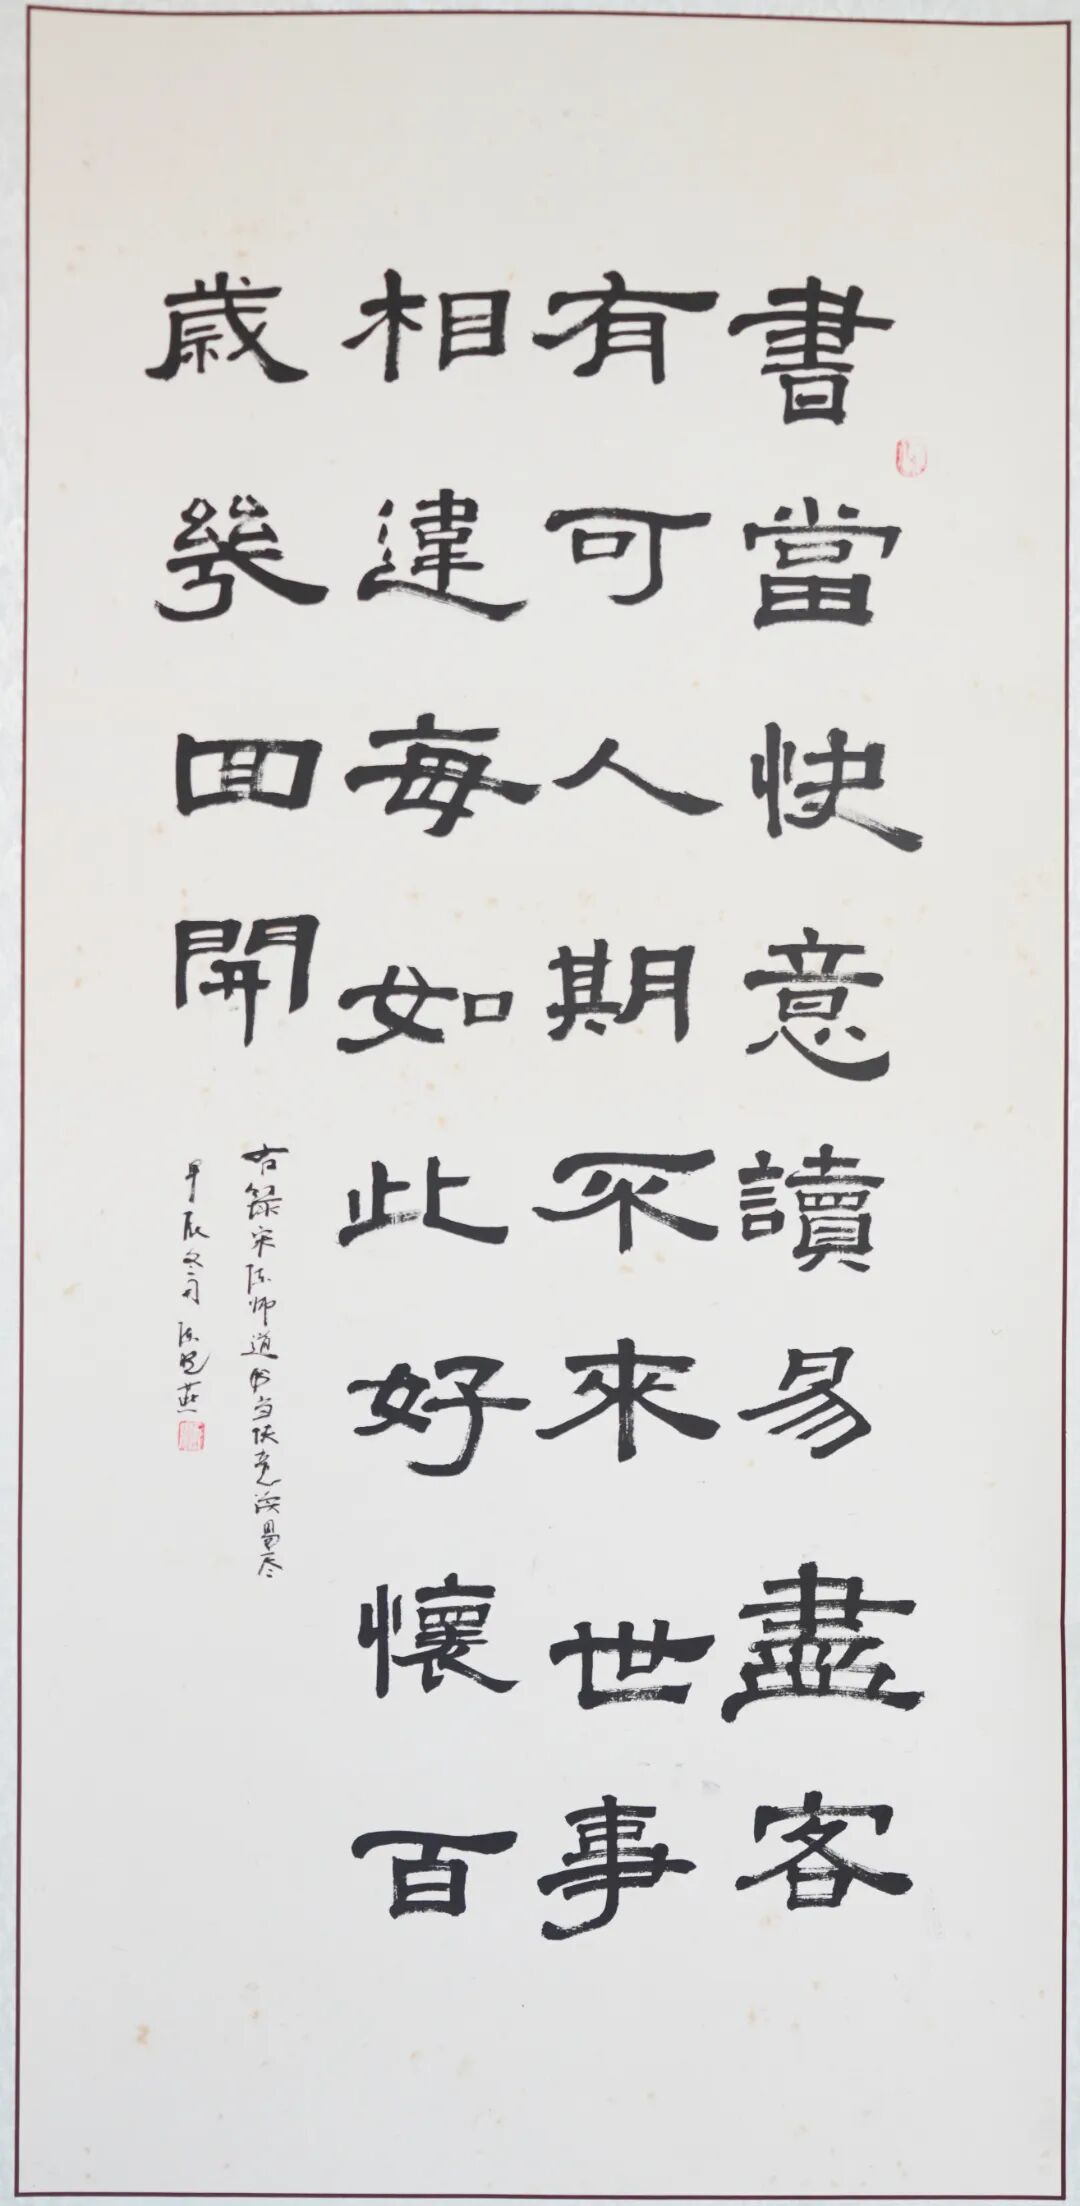 書當快意讀易盡客
有可人期不來世事
相違每如此好懷百
歲幾回開
右錄宋陈师道书当快意读易尽
甲辰冬月陈